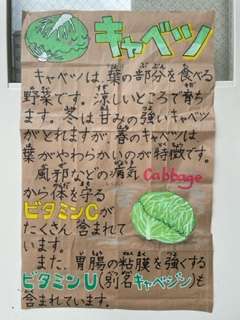 キャベツ
キャベツは、葉の部分を食べる
野菜です。涼しいところで育ち
ます。冬は甘みの強いキャベツ
がとれますが、春のキャベツは
葉がやわらかいのが特徴です。
風邪などの病気
Cabbage
から体を守る
ビタミンCが
たくさん含まれて
います。
また、胃腸の粘膜を強くする
ビタミンU(別名キャベジン)も
含まれています。